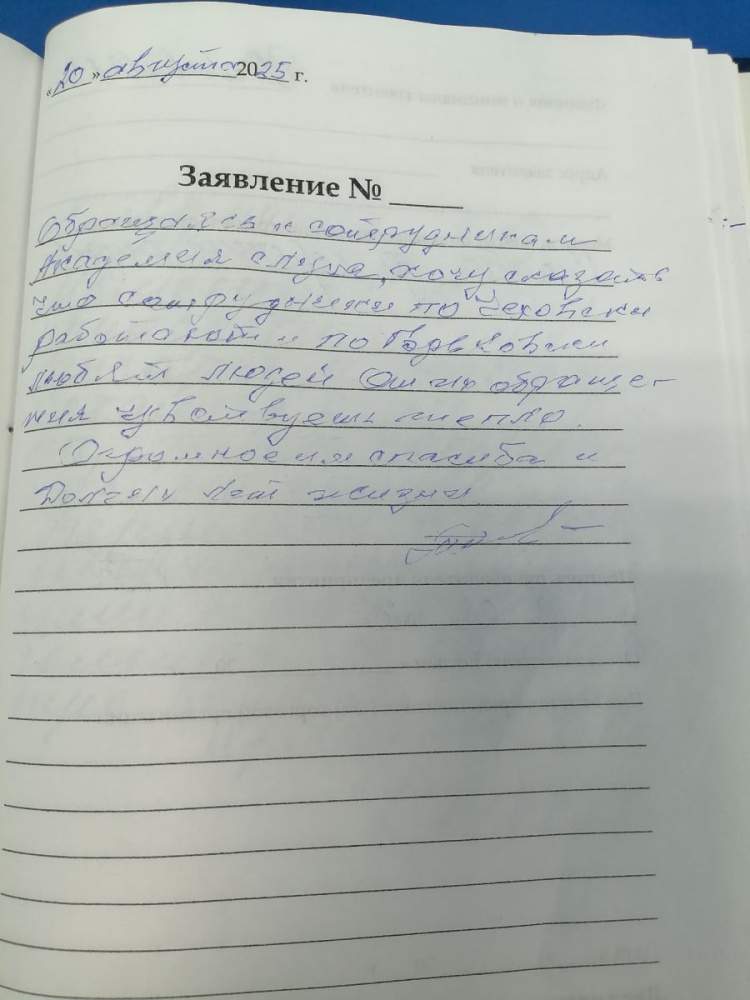 «20» августа 2025 г.
Заявление № _____
Обращаясь к сотрудникам
Академия слуха, хочу сказать
что сотрудники по Чеховски
работают и по Горьковски
любят людей От их обраще-
ния чувствуешь тепло.
Огромное им спасиба и
Долгих лет жизни